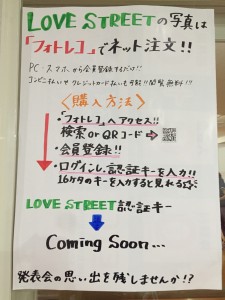 LOVE STREETの写真は
「フォトレコ」でネット注文!!
PC・スマホから会員登録するだけ!!
コンビニ払いやクレジットカード払いも可能!!閲覧無料!!
〈購入方法〉
・「フォトレコ」へアクセス!!
検索 or QRコード→
・会員登録!!
・ログインし、認証キーを入力!!
16ケタのキーを入力すると見れる
LOVE STREET認証キー
Coming Soon...
発表会の思い出を残しませんか!?